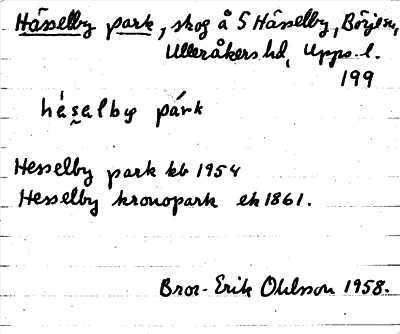 Hässelby park, skog å S Hässelby, Börje sn,
Ulleråkers hd, Upps. l.
199
hésˬalby párk
Hesselby park kb 1954
Hesselby kronopark ek 1861.
Bror-Erik Ohlsson 1958.